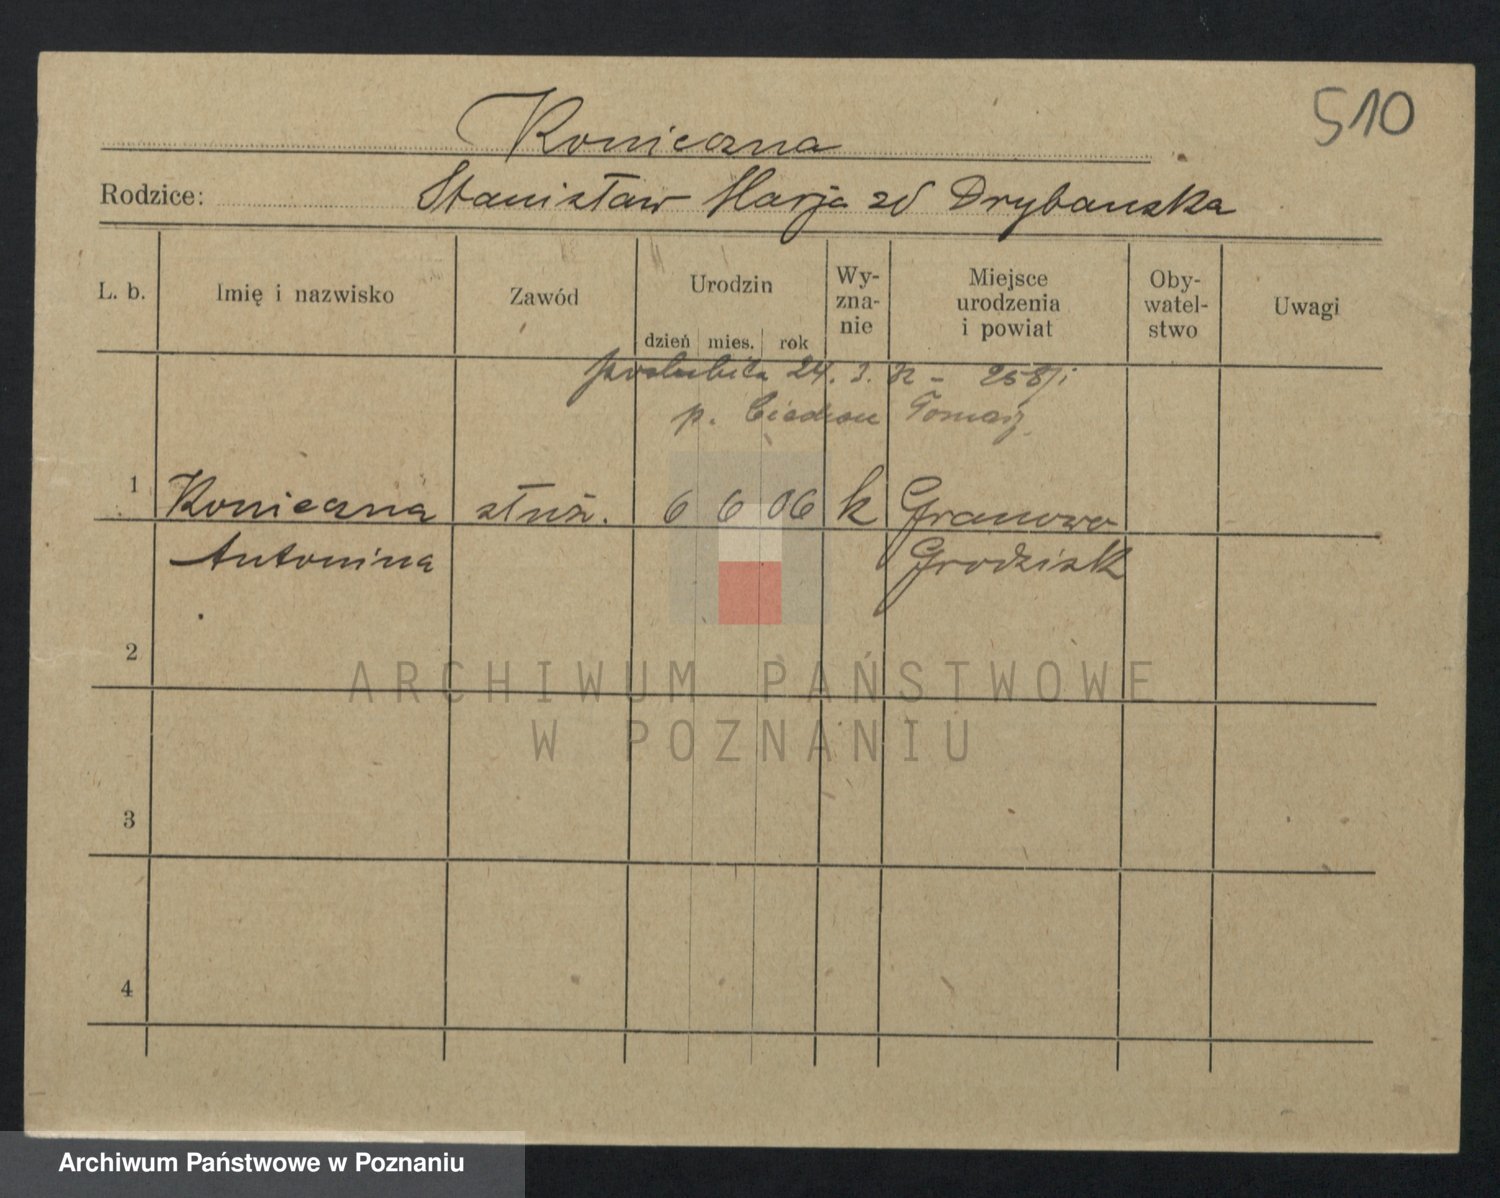 510
Konieczna
Rodzice: Stanisław Marja zd Drybanska
L. b.
Imię i nazwisko
Zawód
Urodzin
dzień mies. rok
Wy-
zna-
nie
Miejsce
urodzenia
i powiat
Oby-
watel-
stwo
Uwagi
poslubiła 24. 3. 32 -
p. Tomasz
1 Konieczna służ. 6 6 06 k Granowo
Antonina Grodzisk
2
3
4
ARCHIWUM PAŃSTWOWE
W POZNANIU
Archiwum Państwowe w Poznaniu